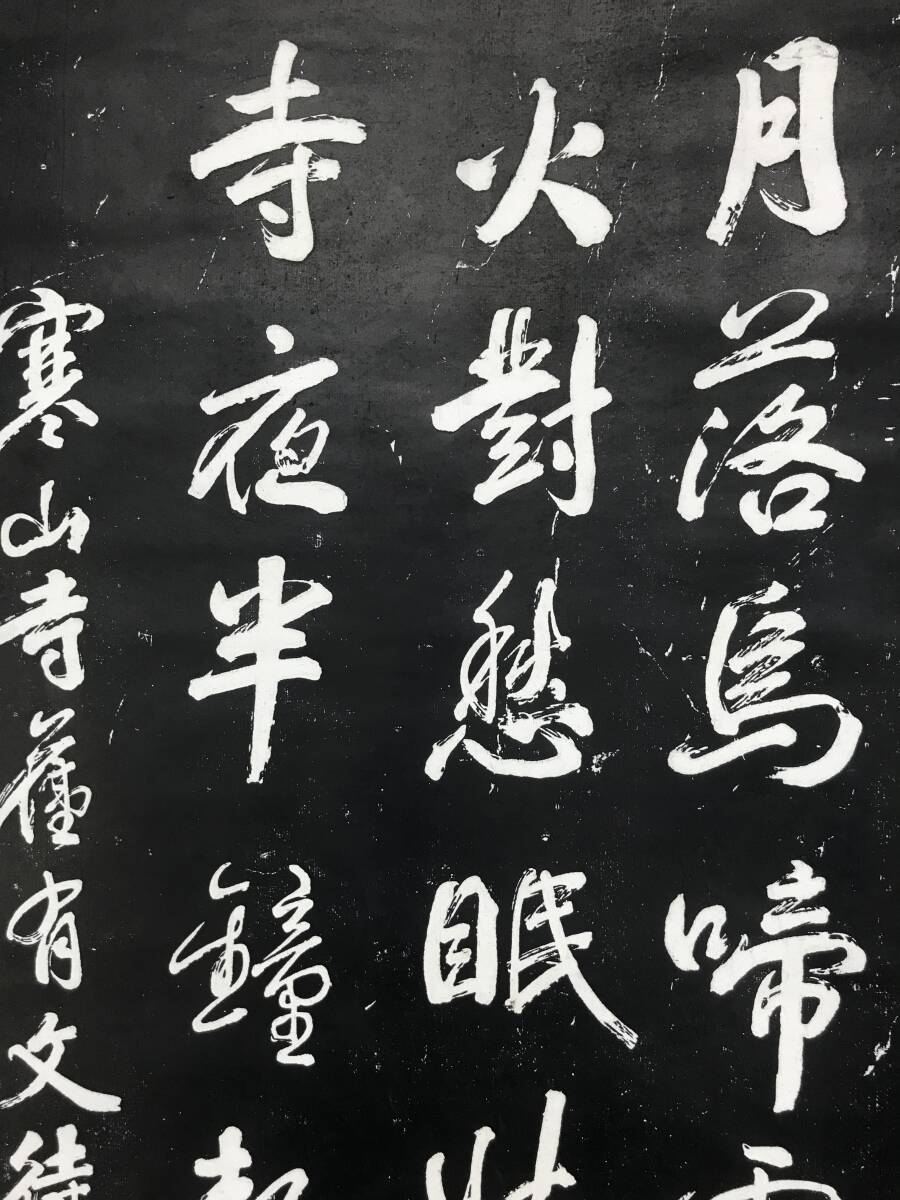 月落烏啼
火對愁眠
寺夜半鐘
寒山寺舊有文待